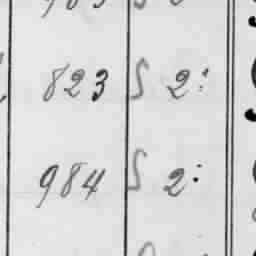 823 S 2:
984 S 2: